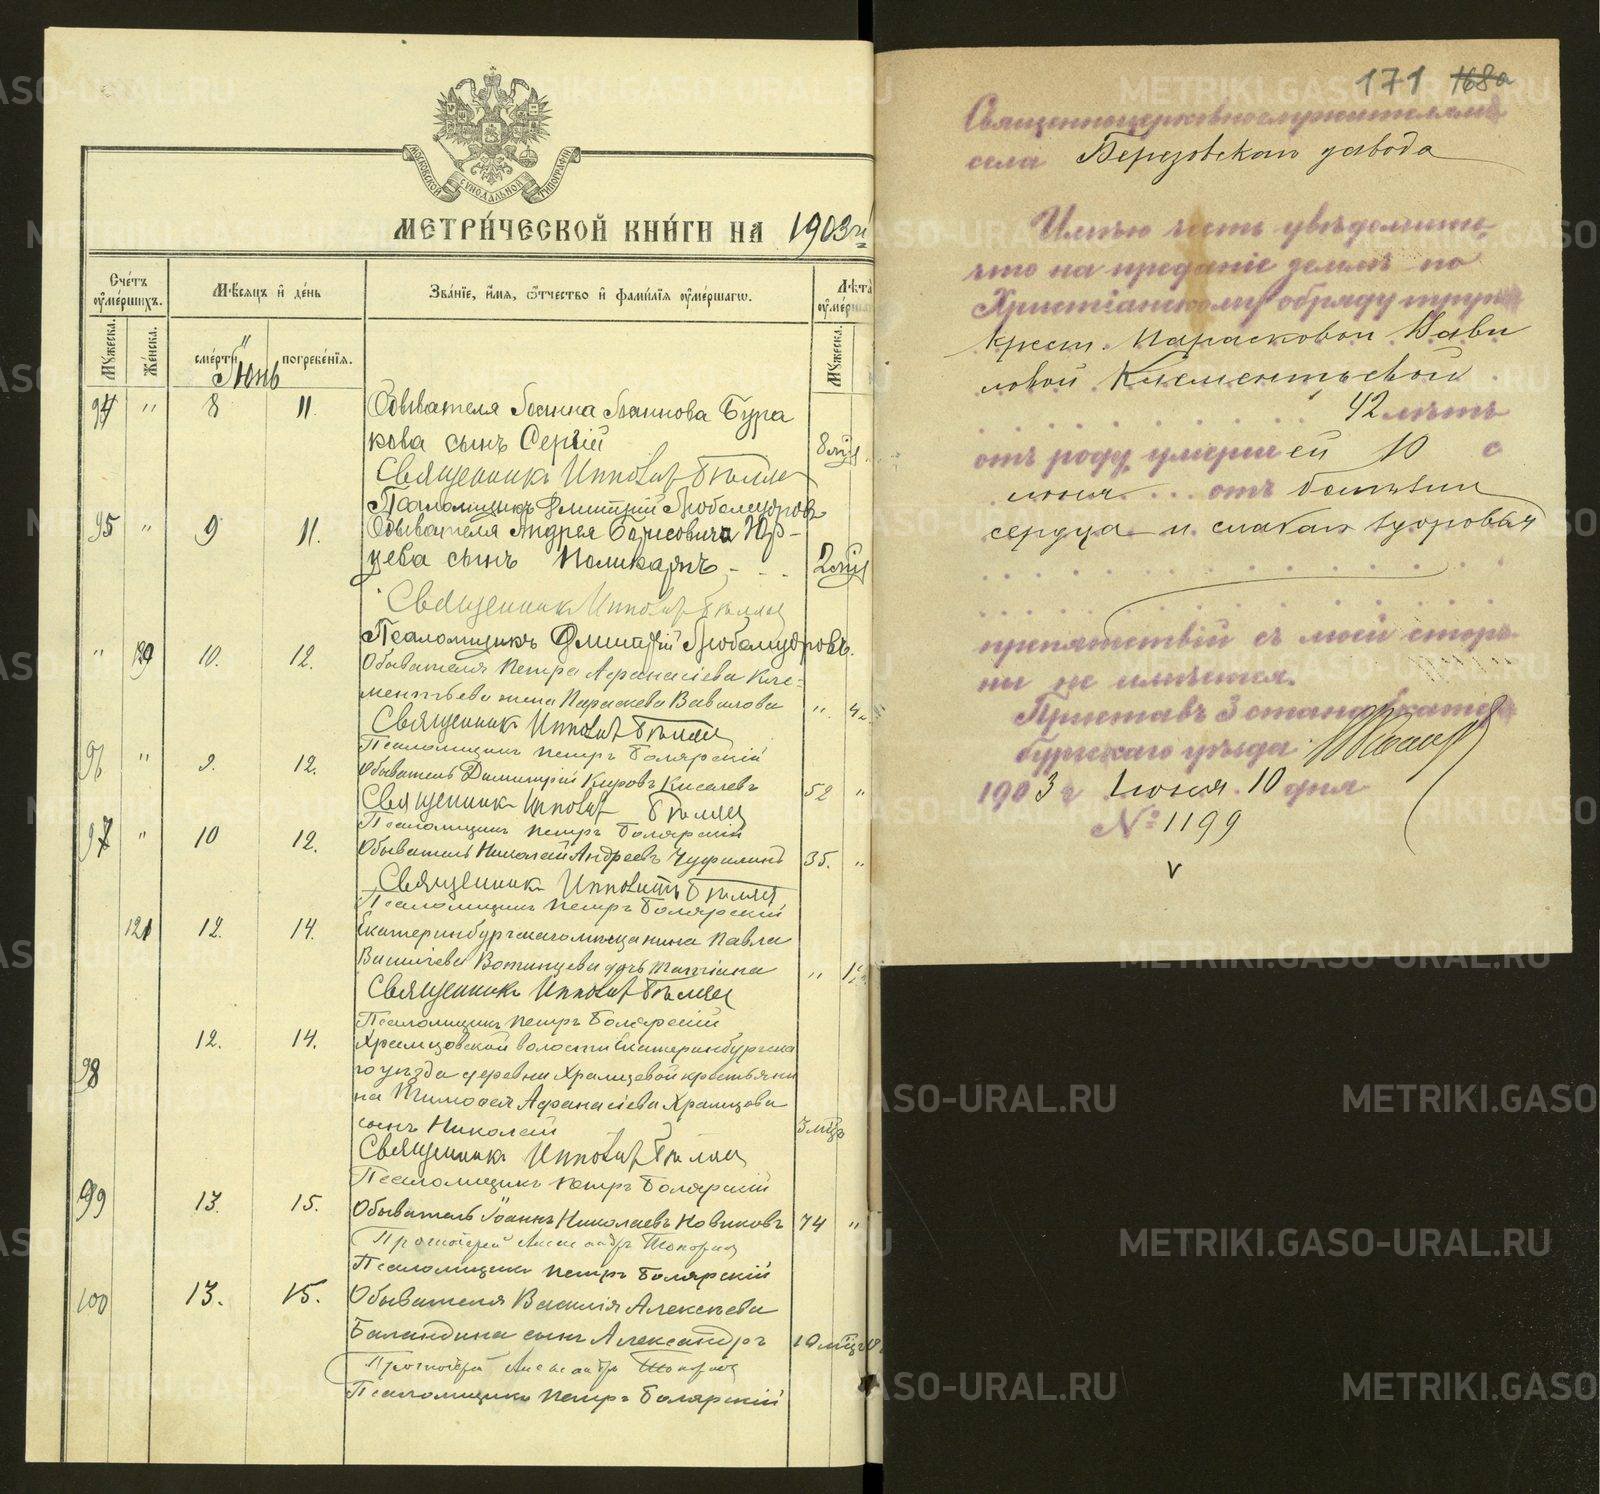 МОСКОВСКОЙ СѴНОДАЛЬНОЙ ТИПОГРАФІИ
МЕТРИ́ЧЕСКОЙ КНИ́ГИ НА 1903 й
Сче́тъ ᲂу҆ме́ршихъ.
Мѣ́сяцъ и҆ де́нь
Зва́нїе, и҆́мя, ѻ҆́тчество и҆ фами́лїя ᲂу҆ме́ршагѡ.
Лѣ́та
Мꙋ́жеска.
Же́нска.
сме́рти
погребе́нїѧ.
Мꙋ́жеска.
Іюнь
94 " 8 11. Обывателя Іоанна Іоаннова Бура
кова сынъ Сергій 8 мц
Священникъ Ипполитъ
Псаломщикъ Дмитрій Любомудровъ
95 " 9 11. Обывателя Андрея Борисовича
сынъ Поликарпъ - . . 2 мц
Священникъ Ипполитъ
Псаломщикъ Дмитрій Любомудровъ.
" 10. 12. Обывателя Петра Афанасіева Кле=
ментьева жена Параскева Вавилова "
Священникъ Ипполитъ
Псаломщикъ Петръ Болярскій
96 " 9. 12. Обыватель Димитрій Кировъ Киселевъ 52 "
Священникъ Ипполитъ
Псаломщикъ Петръ Болярскій
97 " 10 12. Обыватель Николай Андреевъ 35. "
Священникъ Ипполитъ
Псаломщикъ Петръ Болярскій
121 12. 14. Екатеринбургскаго мѣщанина Павла
Василіева дочь Татіана "
Священникъ Ипполитъ
Псаломщикъ Петръ Болярскій
98 12. 14. Храмцовской волости Екатеринбургска
го уѣзда деревни Храмцовой крестьяни
на Тимофея Афанасіева Храмцова
сынъ Николай 3 мцъ
Священникъ Ипполитъ
Псаломщикъ Петръ Болярскій
99 13. 15. Обыватель Іоаннъ Николаевъ Новиковъ 74 "
Протоіерей Александръ Топорков
Псаломщикъ Петръ Болярскій
100 13. 15. Обывателя Василія Алексѣева
Баландина сынъ Александръ 10 мцъ
Протоіерей Александръ
Псаломщикъ Петръ Болярскій
171 168а
Священноцерковнослужителямъ
села Березовскаго завода
Имѣю честь увѣдомить,
что на преданіе землѣ по
Христіанскому обряду трупа
крест. Парасковьи Вави
ловой Клементьевой
42 лѣтъ
отъ роду, умершей 10
іюня . . . отъ болѣзни
сердца и слабаго здоровья
препятствій съ моей сторо-
ны не имѣется.
Приставъ 3 стана Екатерин
бургскаго уѣзда
1903 г. Іюня 10 дня
№ 1199
METRIKI.GASO-URAL.RU